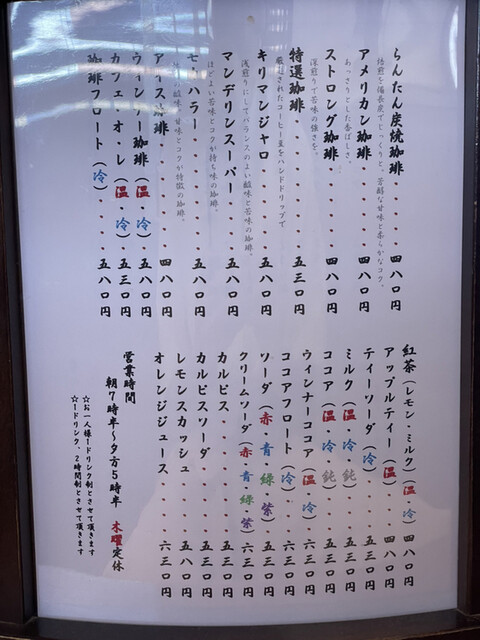 らんたん炭焼珈琲・・・・・四八〇円
焙煎を備長炭でじっくりと。芳醇な甘味と柔らかなコク。
アメリカン珈琲・・・・・四八〇円
あっさりとした香ばしさ。
ストロング珈琲・・・・・四八〇円
深煎りで苦味の強さを。
特選珈琲・・・・・五三〇円
厳選されたコーヒー豆をハンドドリップで
キリマンジャロ・・・・・五八〇円
浅煎りにしてバランスのよい酸味と苦味の珈琲。
マンデリンスーパー・・・・五八〇円
ほどよい苦味とコクが持ち味の珈琲。
モカハラー・・・・・五八〇円
酸味と甘味とコクが特徴の珈琲。
アイス珈琲・・・・・四八〇円
ウィンナー珈琲(温・冷)・・五八〇円
カフェ・オ・レ(温・冷)・・五三〇円
珈琲フロート(冷)・・・・五八〇円
紅茶(レモン・ミルク)(温・冷)四八〇円
アップルティー(温)・・・四八〇円
ティーソーダ(冷)・・・・五三〇円
ミルク(温・冷・鈍)・・・五三〇円
ココア(温・冷・鈍)・・・五三〇円
ウィンナーココア(温・冷)・六三〇円
ココアフロート(冷)・・・六三〇円
ソーダ(赤・青・緑・紫)・・五三〇円
クリームソーダ(赤・青・緑・紫)六三〇円
カルピス・・・・・五三〇円
カルピスソーダ・・・・・五三〇円
レモンスカッシュ・・・・五八〇円
オレンジジュース・・・・六三〇円
営業時間
朝7時半〜夕方5時半 木曜定休
☆お一人様1ドリンク制とさせて頂きます
☆1ドリンク、2時間制とさせて頂きます